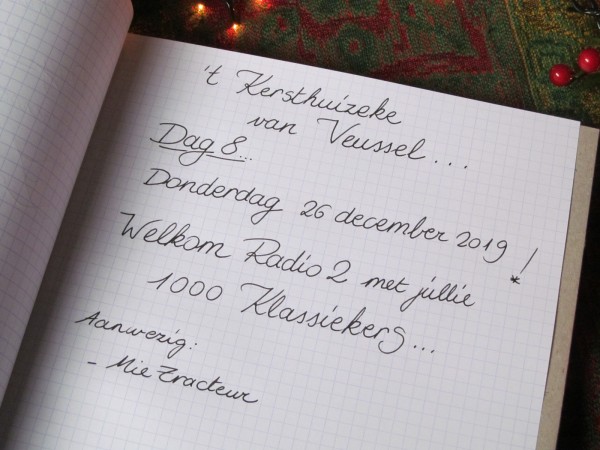 't Kersthuizeke
van Veussel...
Dag 8...
Donderdag 26 december 2019!
Welkom Radio 2 met jullie
1000 Klassiekers...
Aanwezig:
- Mie Tracteur